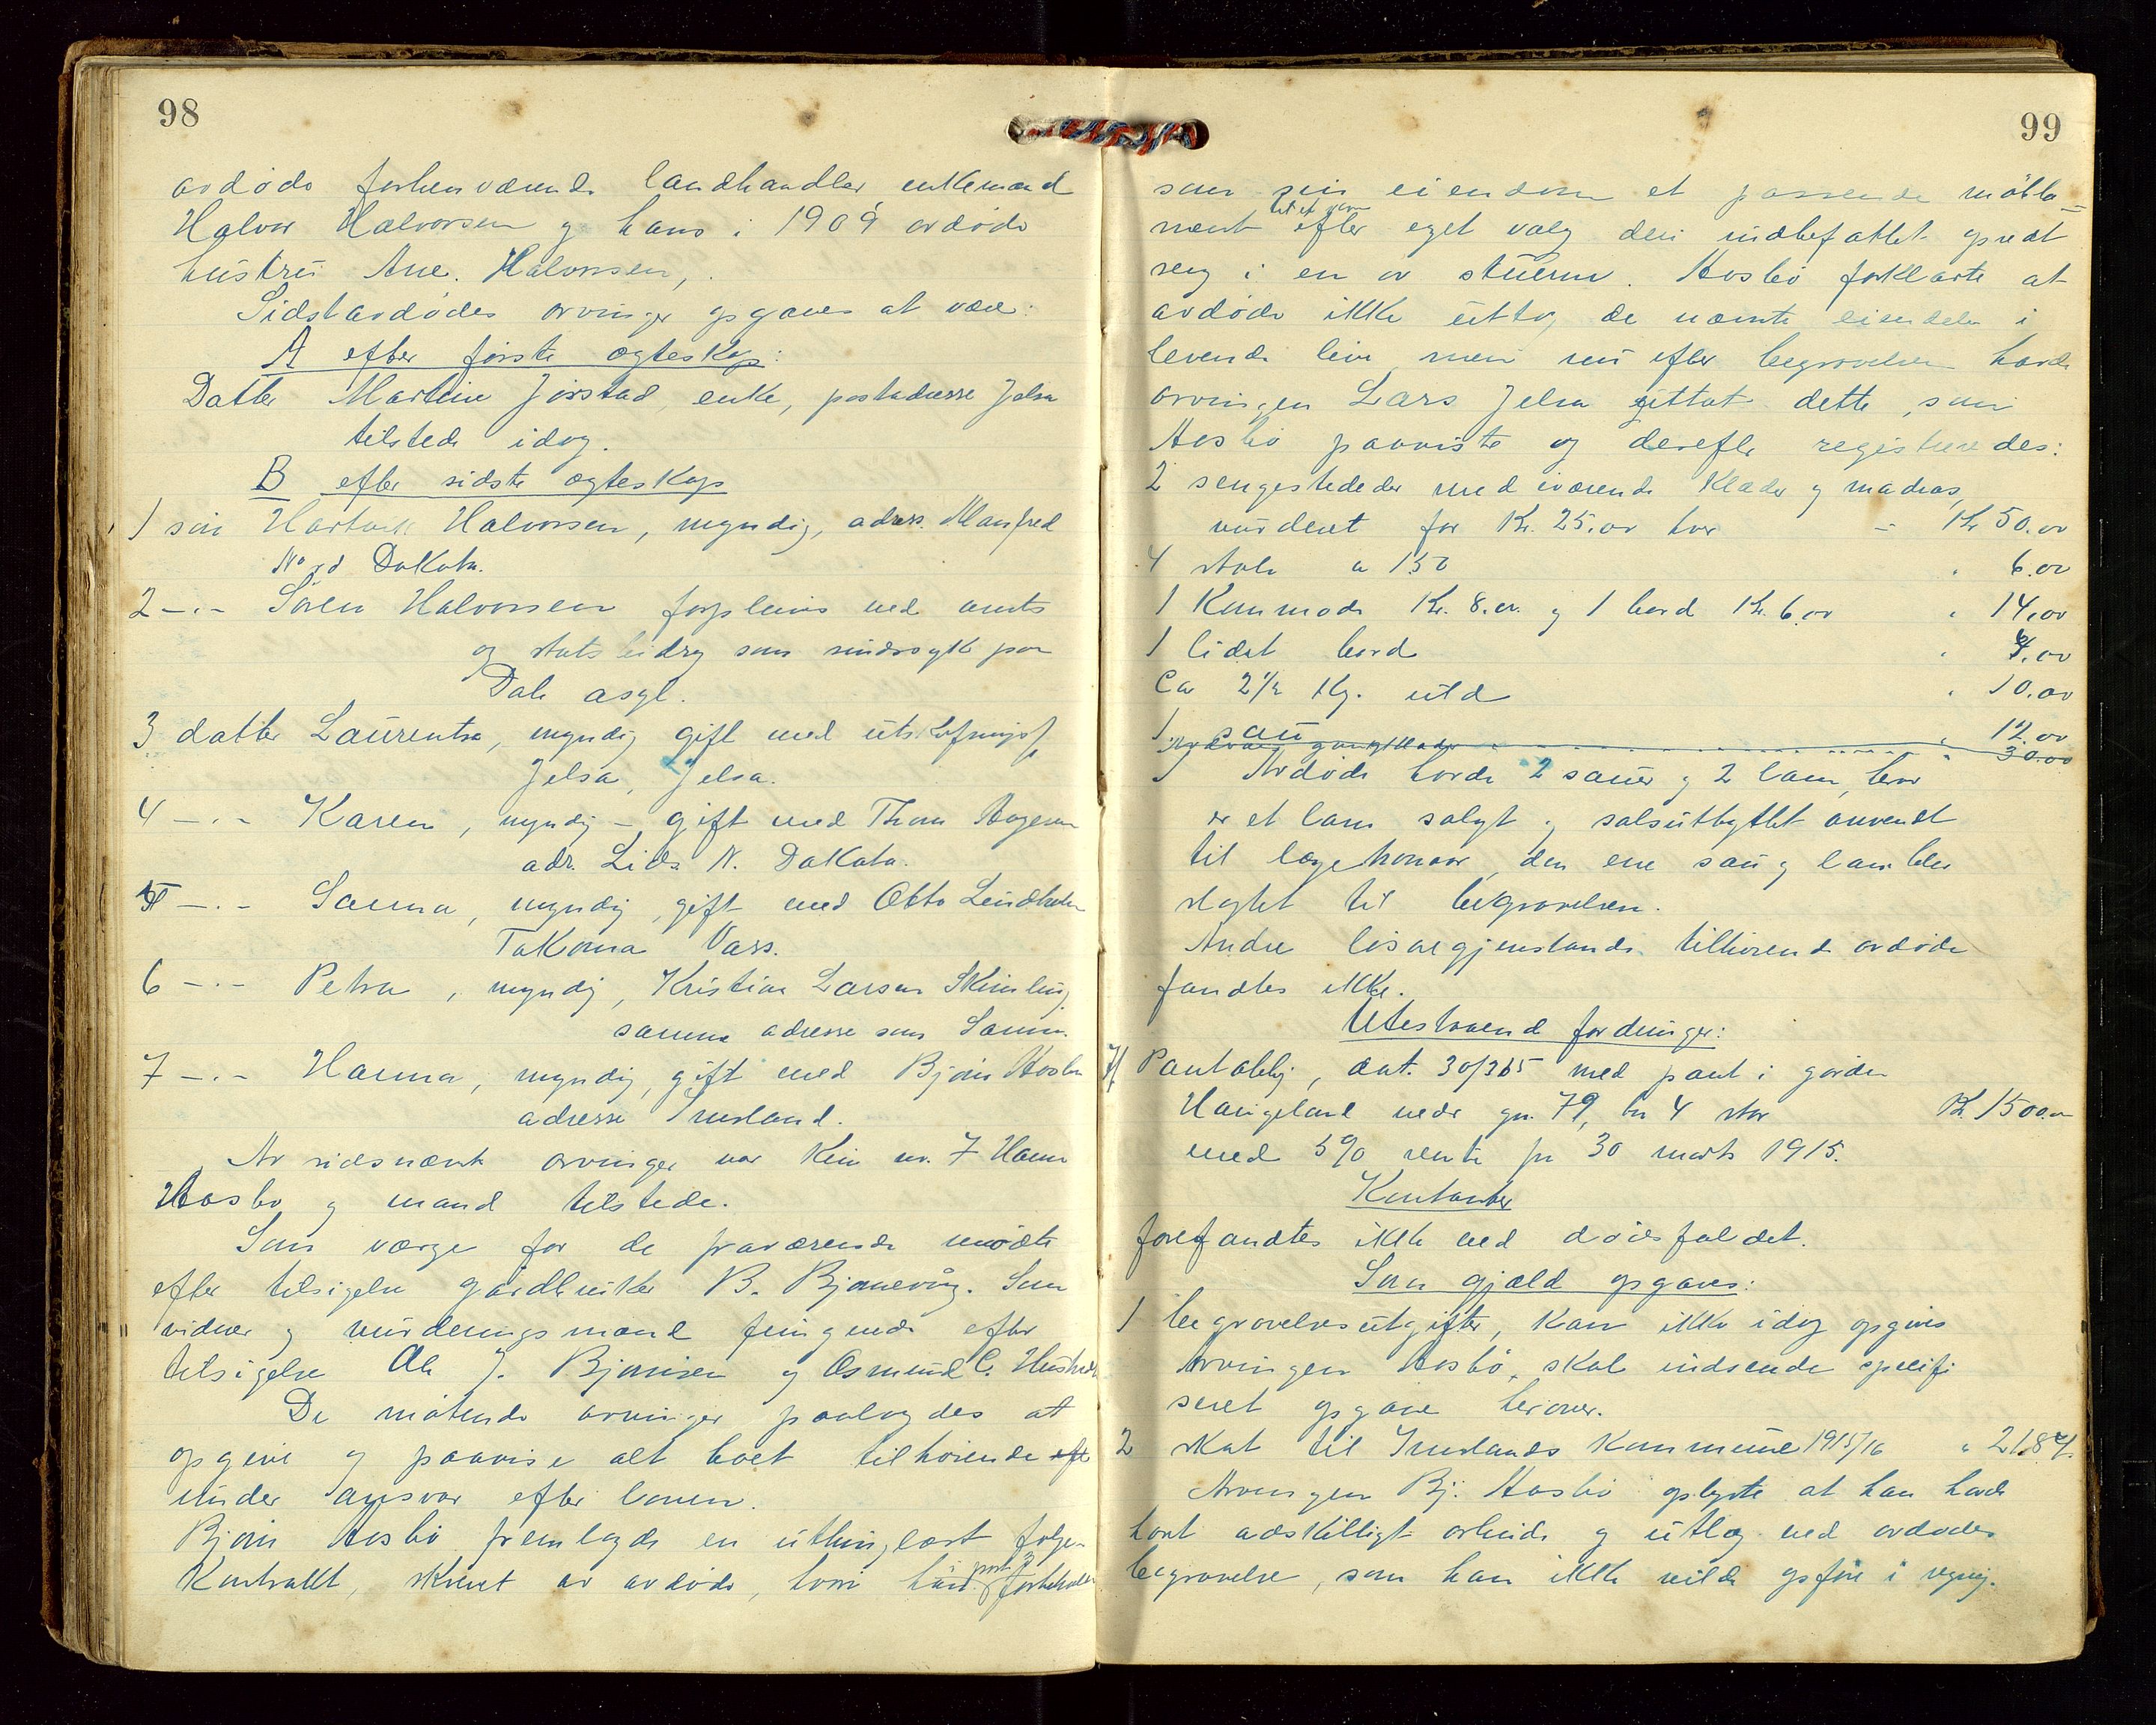 98
avdøde forhenværende landhandler enkemand
Halvor Halvorsen og hans i 1909 avdøde
hustru Ane Halvorsen,
Sidstavdødes arvinger opgaves at være:
A efter første ægteskap:
Datter Martine Jørstad, enke, postadresse Jelsa
tilstede idag.
B efter sidste ægteskap
1 søn Hartvik Halvorsen, myndig, adress. Manfred
Nord Dakota.
2 -.- Søren Halvorsen forpleies ved amts
og statsbidrag som sindssyk paa
Dale asyl.
3 datter Laurentse, myndig gift med utskiftningsf
Jelsa, Jelsa.
4 -.- Karen, myndig - gift med Thom
adr. Lids N. Dakota.
5 -.- Sanna, myndig, gift med Otto Lindholm
Takoma Vass.
6 -.- Petra, myndig, Kristian Larsen
samme adresse som Sanna.
7 -.- Hanna, myndig, gift med Bjørn Hosbø
adresse Imsland.
Av sidsnævnte arvinger var kun nr. 7 Hanna
Hosbø og mand tilstede.
Som værge for de fraværende mødte
efter tilsigelse gårdbruker B. Bjonevåg. Som
vidner og vurderingsmænd fungerede efter
tilsigelse Ole J. Bjørnsen og Osmund C.
De møtende arvinger paalagdes at
opgive og paavise alt boet tilhørende
under ansvar efter loven.
Bjørn Hosbø fremlagde en uthinglæst følge-
kontrakt, skrevet av avdøde, hvori han i post 3 forbeholdt
99
som sin eiendom et passende møble-
ment til et værelse efter eget valg deri indbefattet opredt
seng i en av stuerne. Hosbø forklarte at
avdøde ikke uttog de nævnte eiendele i
levende live, men nu efter begravelsen havde
arvingen Lars Jelsa uttat dette, som
Hosbø paaviste og derefter registreredes:
2 sengestededer med iværende klæder og madras,
vurderet for Kr. 25.00 hver - Kr 50.00
4 stole a 150 " 6.00
1 kommode Kr. 8.00 og 1 bord Kr. 6.00 " 14.00
1 lidet bord " 4.00
Ca 2 1/2 Kg. uld " 10.00
1 sau " 12.00
gangklæder " 30.00
Avdøde havde 2 sauer og 2 lam, hvor
er et lam solgt og salsutbyttet anvendt
til lægehonorar, den ene sau og lam blev
slagtet til begravelsen.
Andre løsøregjenstande tilhørende avdøde
fandtes ikke.
Utestaaende fordringer:
1 Pantoblig, dat. 30/3 15 med pant i gården
Haugeland nedr gn. 79, bn 4 stor Kr. 1500.00
med 5% rente fra 30 marts 1915.
Kontanter
forefandtes ikke ved dødsfaldet.
Som gjæld opgaves:
1 begravelsesutgifter, kan ikke idag opgives
Arvingen Hosbø skal indsende specifi
seret opgave herover.
2 skat til Imslands kommune 1915/16 " 21.84.
Arvingen Bj. Hosbø oplyste at han havde
havt adskilligt arbeide og utlæg ved avdødes
begravelse, som han ikke vilde opføre i regning.